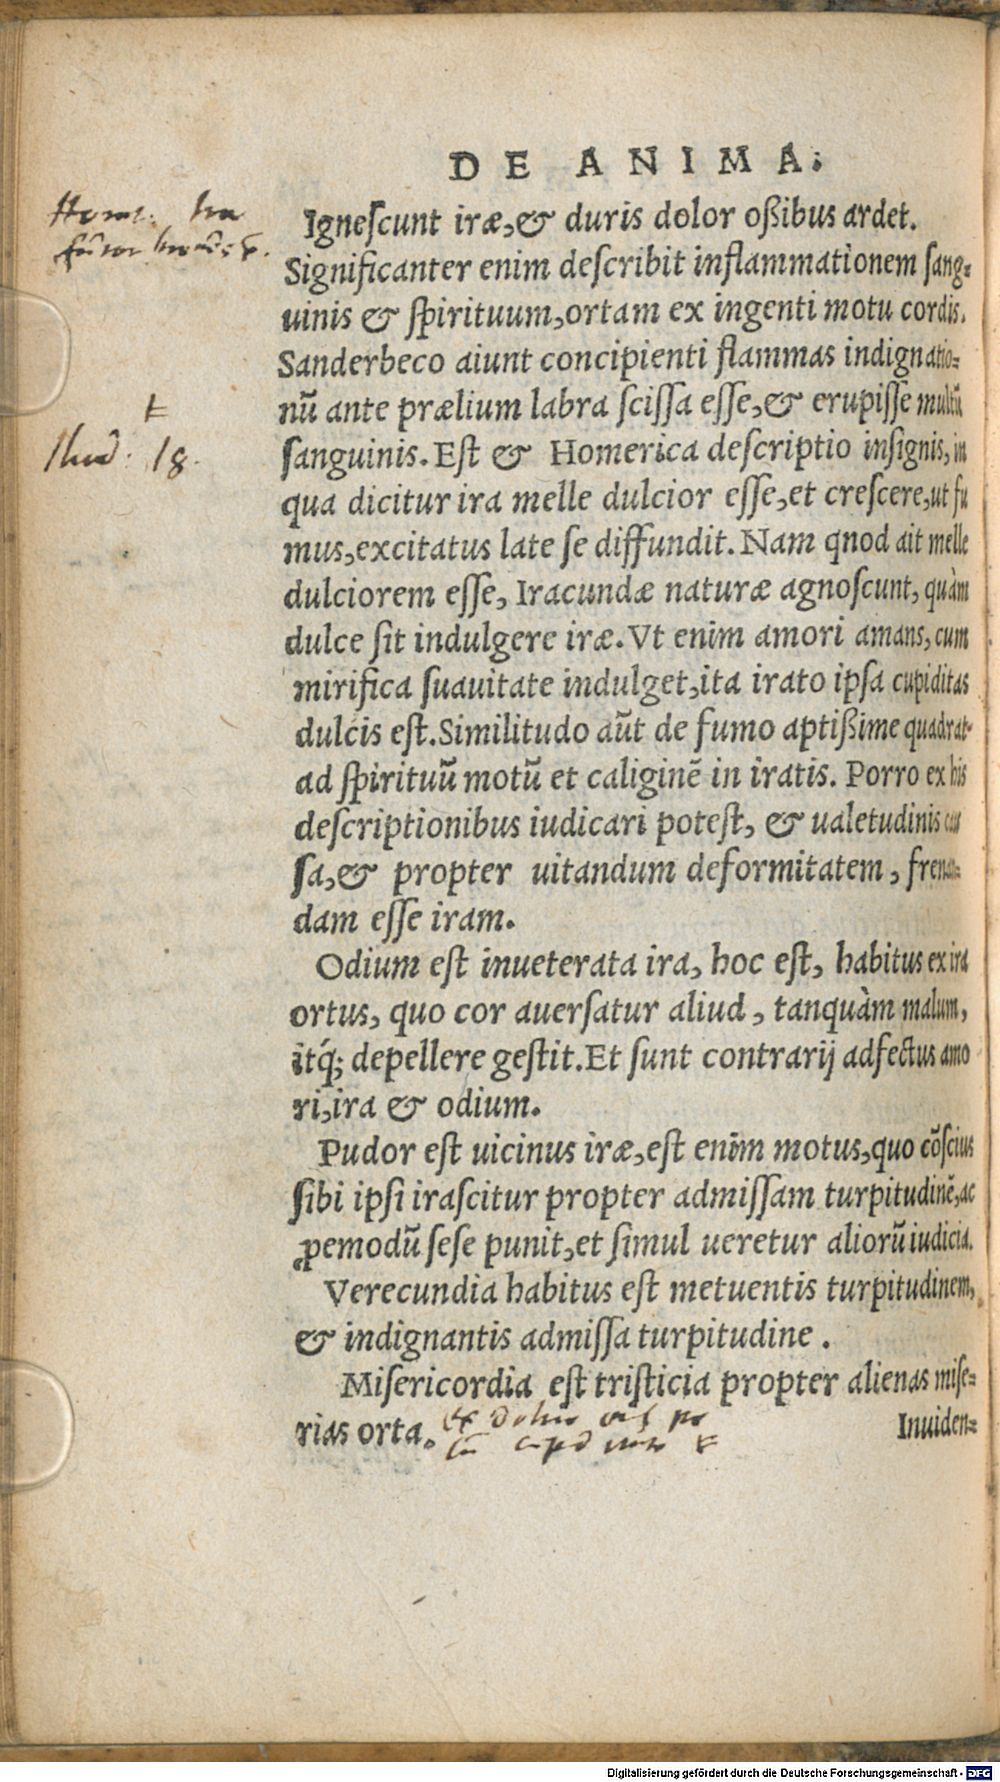 DE ANIMA.
Ignescunt iræ, & duris dolor oßibus ardet.
Significanter enim describit inflammationem sang-
uinis & spirituum, ortam ex ingenti motu cordis.
Sanderbeco aiunt concipienti flammas indignatio-
nũ ante prælium labra scissa esse, & erupisse multũ
sanguinis. Est & Homerica descriptio insignis, in
qua dicitur ira melle dulcior esse, et crescere, ut fu
mus, excitatus late se diffundit. Nam qnod ait melle
dulciorem esse, Iracundæ naturæ agnoscunt, quàm
dulce sit indulgere iræ. Vt enim amori amans, cum
mirifica suauitate indulget, ita irato ipsa cupiditas
dulcis est. Similitudo aũt de fumo aptißime quadrat
ad spirituũ motũ et caliginẽ in iratis. Porro ex his
descriptionibus iudicari potest, & ualetudinis cau
sa, & propter uitandum deformitatem, frenan-
dam esse iram.
Odium est inueterata ira, hoc est, habitus ex ira
ortus, quo cor auersatur aliud, tanquàm malum,
itq́; depellere gestit. Et sunt contrarij adfectus amo
ri, ira & odium.
Pudor est uicinus iræ, est enim motus, quo cõscius
sibi ipsi irascitur propter admissam turpitudinẽ, ac
ꝓpemodũ sese punit, et simul ueretur aliorũ iudicia.
Verecundia habitus est metuentis turpitudinem,
& indignantis admissa turpitudine.
Misericordia est tristicia propter alienas mise-
rias orta.
Inuiden-
18.
Digitalisierung gefördert durch die Deutsche Forschungsgemeinschaft - DFG